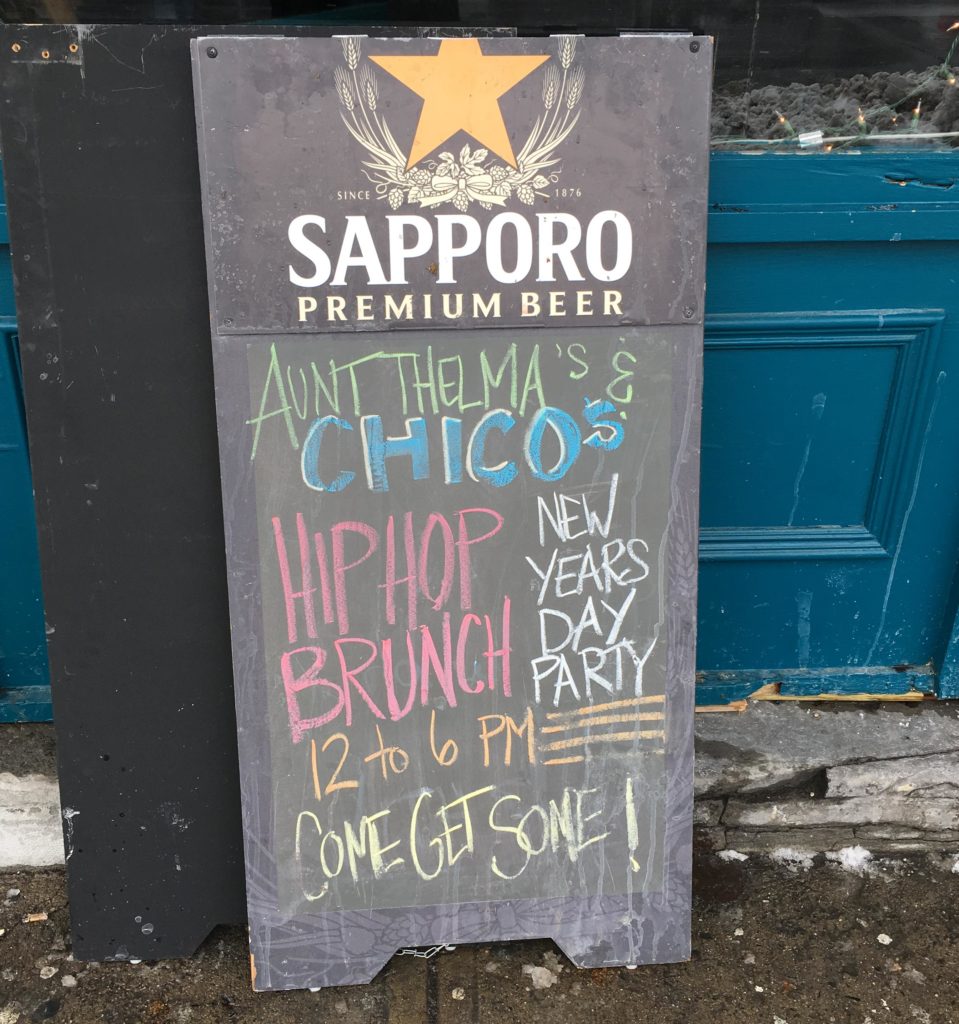 SINCE 1876
SAPPORO
PREMIUM BEER
AUNT THELMA'S &
CHICO'S
HIP HOP
BRUNCH
NEW
YEARS
DAY
PARTY
12 to 6 PM
COME GET SOME!